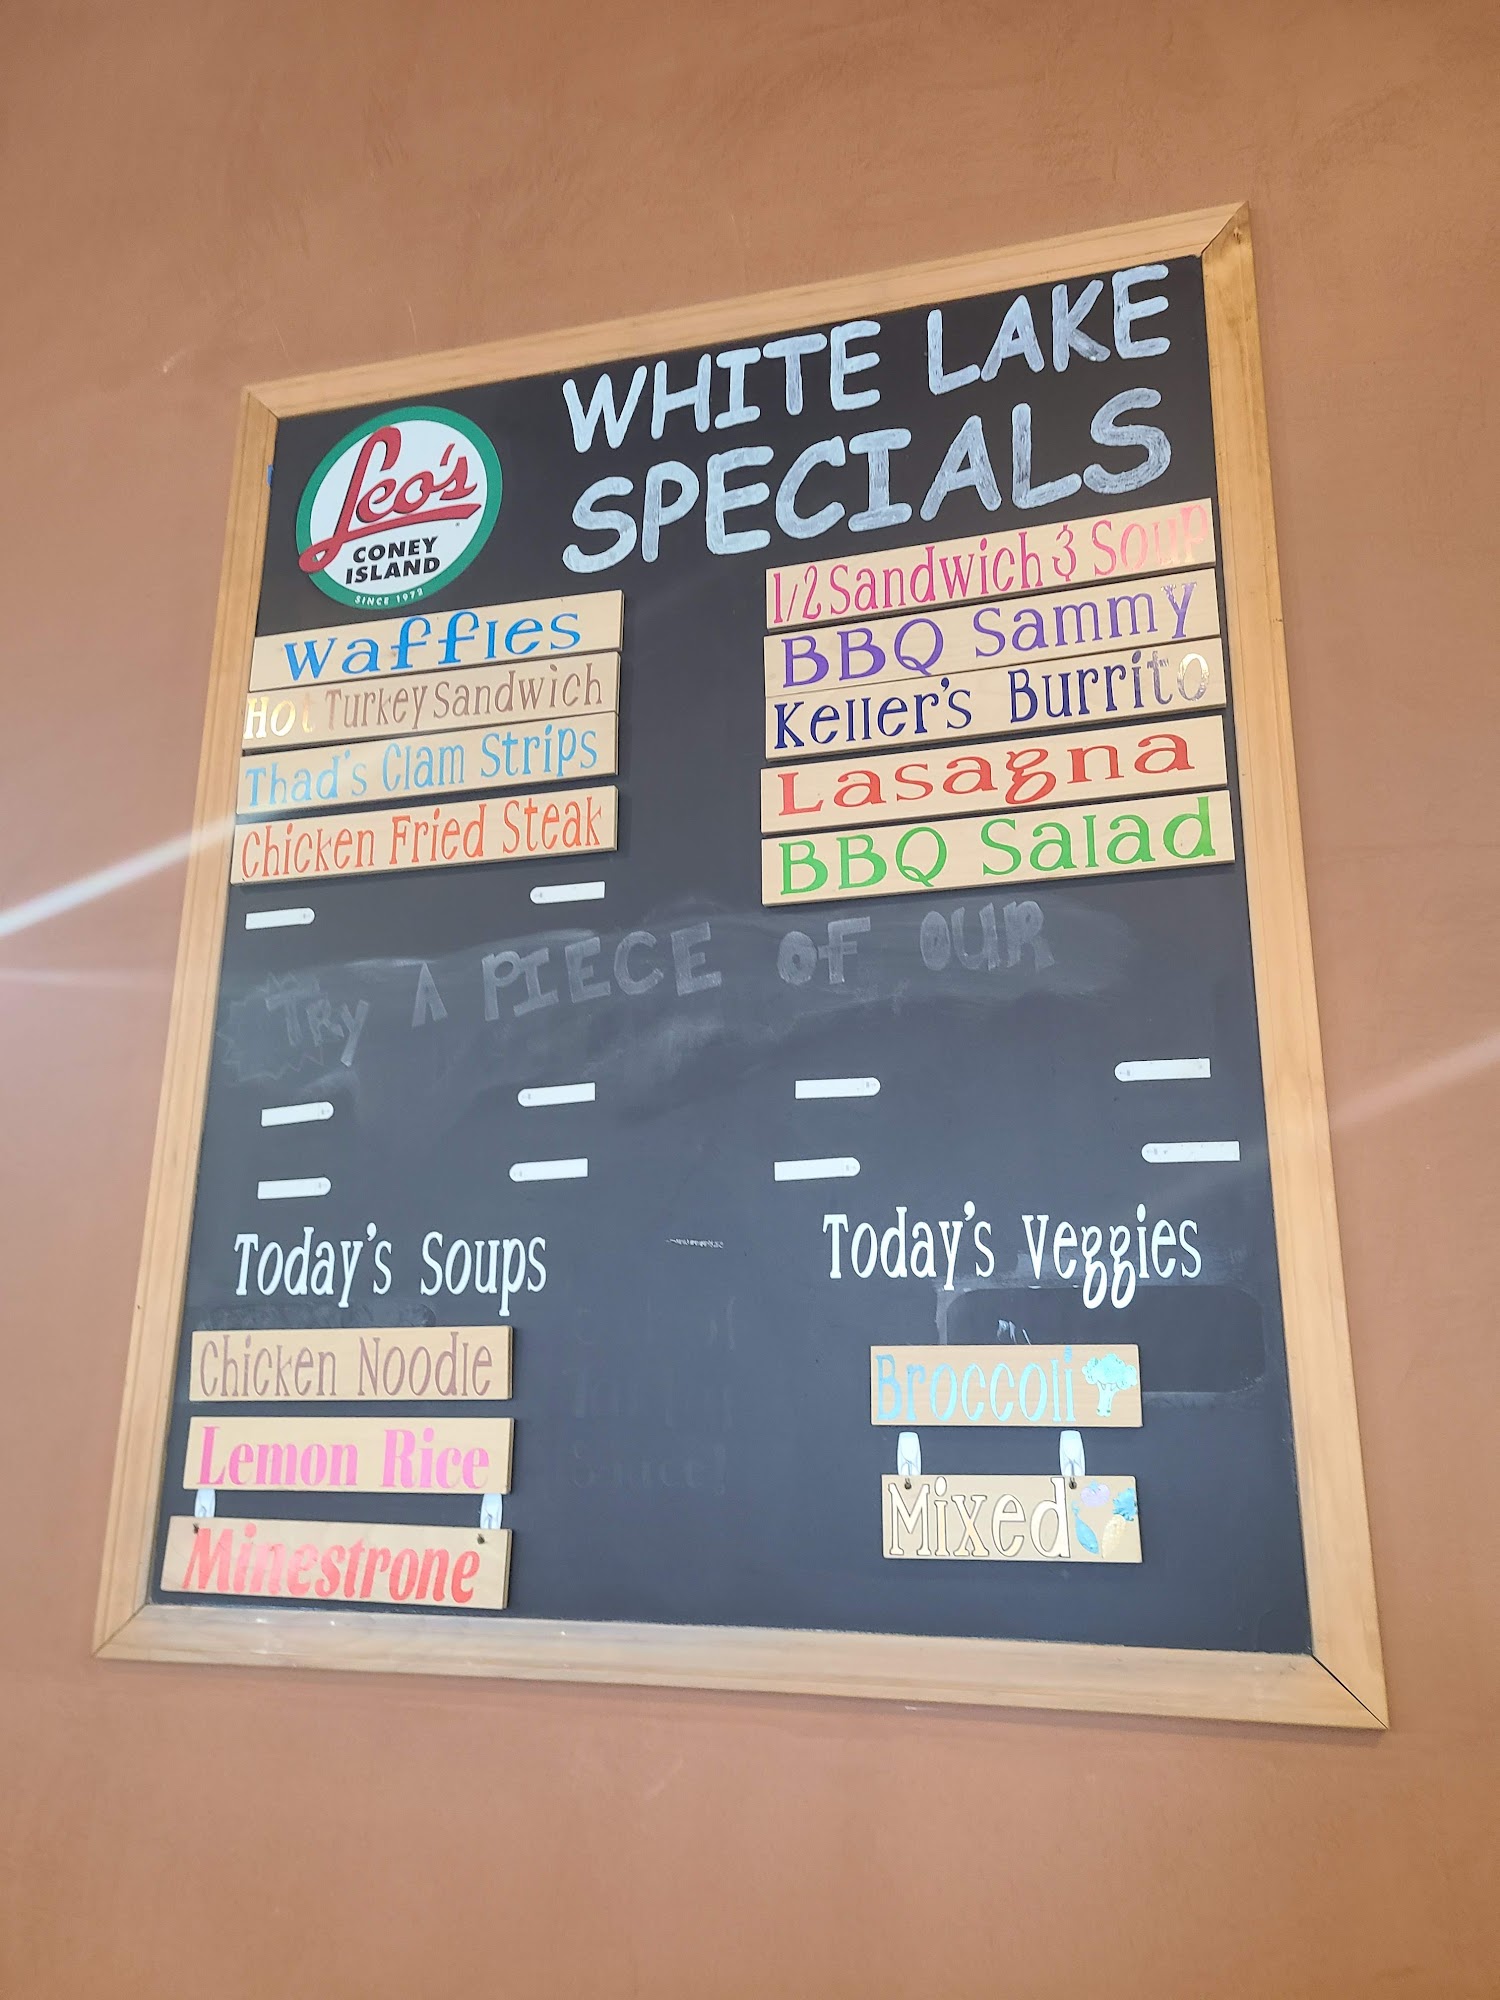 Leo's
CONEY
ISLAND
SINCE 1972
WHITE LAKE
SPECIALS
Waffles
Hot Turkey Sandwich
Thad's Clam Strips
Chicken Fried Steak
1/2 Sandwich & Soup
BBQ Sammy
Keller's Burrito
Lasagna
BBQ Salad
TRY A PIECE OF OUR
Today's Soups
Chicken Noodle
Lemon Rice
Minestrone
Today's Veggies
Broccoli
Mixed